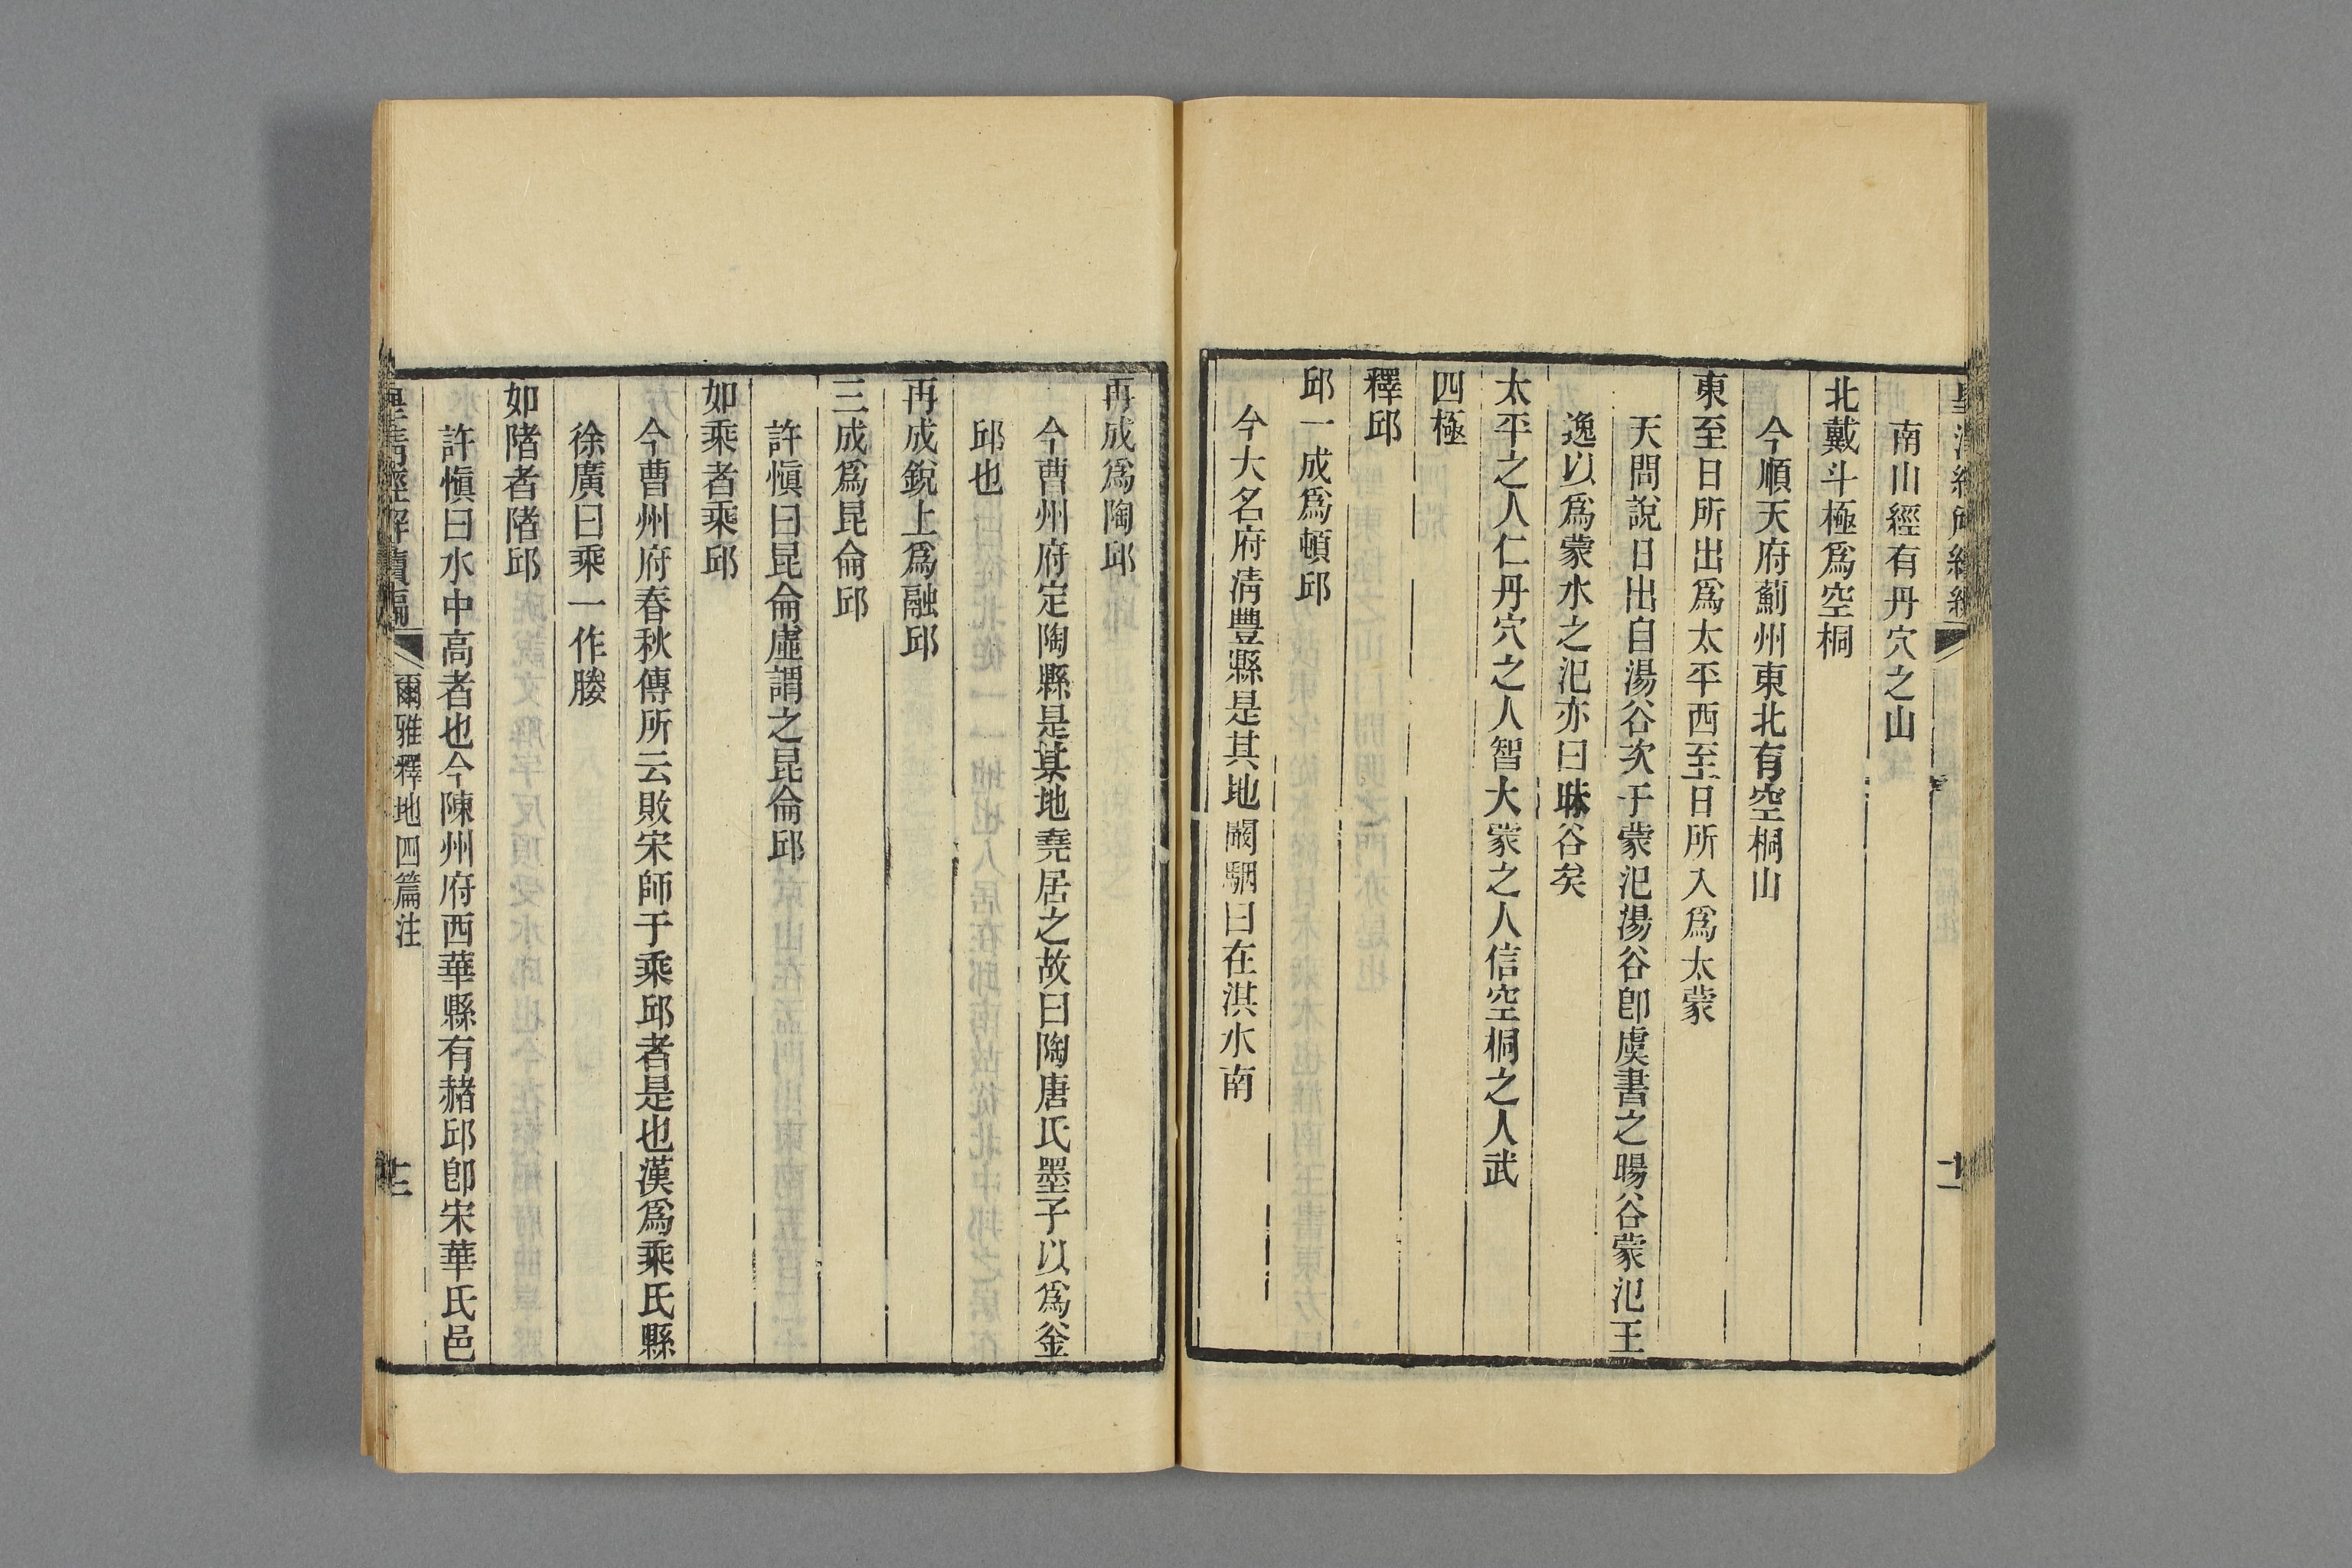 南山經有丹穴之山
北戴斗極爲空桐
今順天府薊州東北有空桐山
東至日所出爲太平西至日所入爲太蒙
天問說日出自湯谷次于蒙汜湯谷卽虞書之暘谷蒙汜王
逸以爲蒙水之汜亦曰昧谷矣
太平之人仁丹穴之人智大蒙之人信空桐之人武
四極
釋邱
邱一成爲頓邱
今大名府清豐縣是其地闞駰曰在淇水南
再成爲陶邱
今曹州府定陶縣是其地堯居之故曰陶唐氏墨子以爲釜
邱也
再成銳上爲融邱
三成爲昆侖邱
許愼曰昆侖虛謂之昆侖邱
如乘者乘邱
今曹州府春秋傳所云敗宋師于乘邱者是也漢爲乘氏縣
徐廣曰乘一作塍
如陼者陼邱
許愼曰水中高者也今陳州府西華縣有赭邱卽宋華氏邑
皇清經解續編 爾雅釋地四篇注